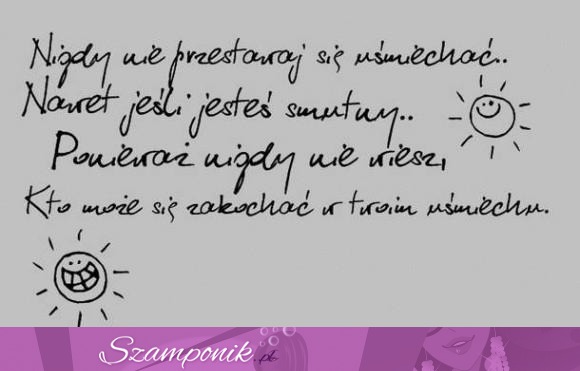 Nigdy nie przestawaj się uśmiechać..
Nawet jeśli jesteś smutny..
Ponieważ nigdy nie wiesz,
Kto może się zakochać w twoim uśmiechu.
Szamponik.pl